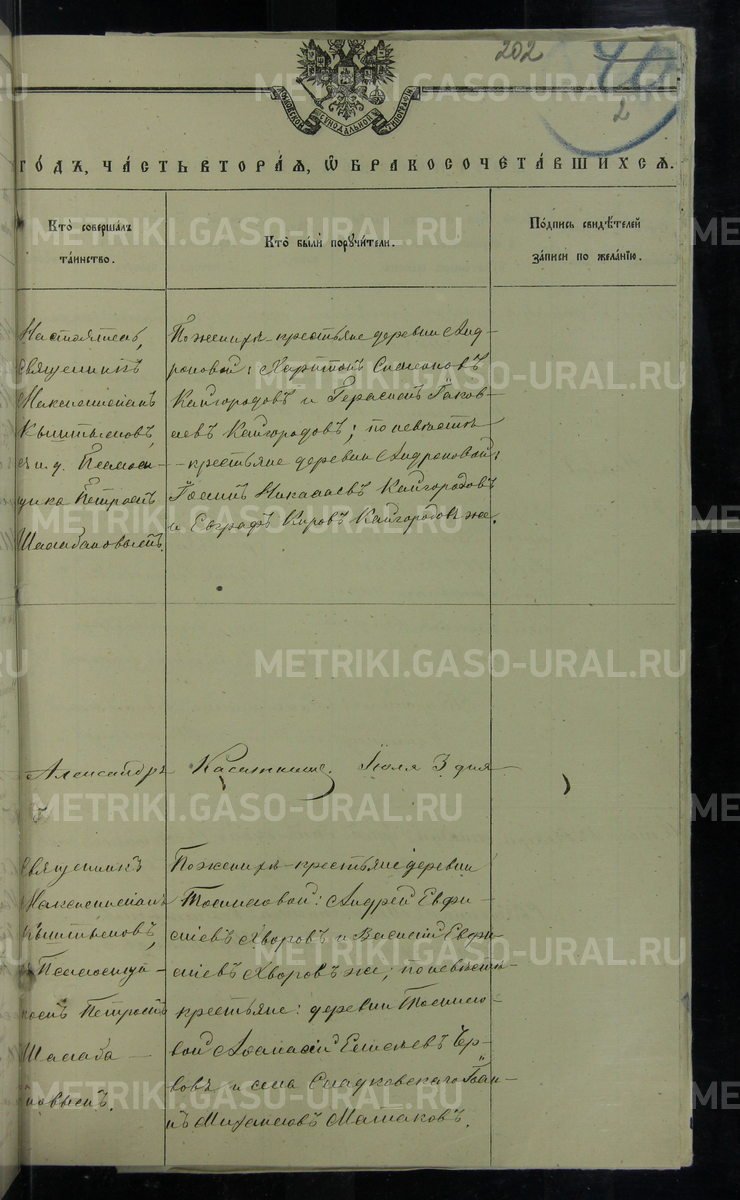 202
2
МОСКОВСКОЙ СУНОДАЛЬНОЙ ТИПОГРАФІИ
ГО́ДЪ, ЧА́СТЬ ВТОРА́Я, Ѡ БРАКОСОЧЕТА́ВШИХСЯ.
Кто̀ соверша́лъ
та́инство.
Кто̀ бы́ли поручи́тели.
По́дпись свидѣ́телей
за́писи по жела́нію.
Настоятель,
Священникъ
Максимиліанъ
Кыштымовъ,
съ и. д. Псалом-
щика Петромъ
Шалабановымъ.
По женихѣ – крестьяне деревни Анд-
роновой: Харитонъ Симеоновъ
Кайгородовъ и Герасимъ Іаков-
левъ Кайгородовъ; по невѣстѣ
– крестьяне деревни Андроновой:
Николаевъ Кайгородовъ
и Евграфъ Кировъ Кайгородовъ же.
Александръ Касаткинъ. Іюля 3 дня
Священникъ
Максимиліанъ
Кыштымовъ,
съ Псаломщи-
комъ Петромъ
Шалаба-
новымъ.
По женихѣ – крестьяне деревни
Томиловой: Андрей Евфи-
міевъ Хворовъ и Василій Евфи-
міевъ Хворовъ же; по невѣстѣ –
крестьяне: деревни Томило-
вой Аѳанасій
и села Сладковскаго Іоан-
нъ Михаиловъ
METRIKI.GASO-URAL.RU